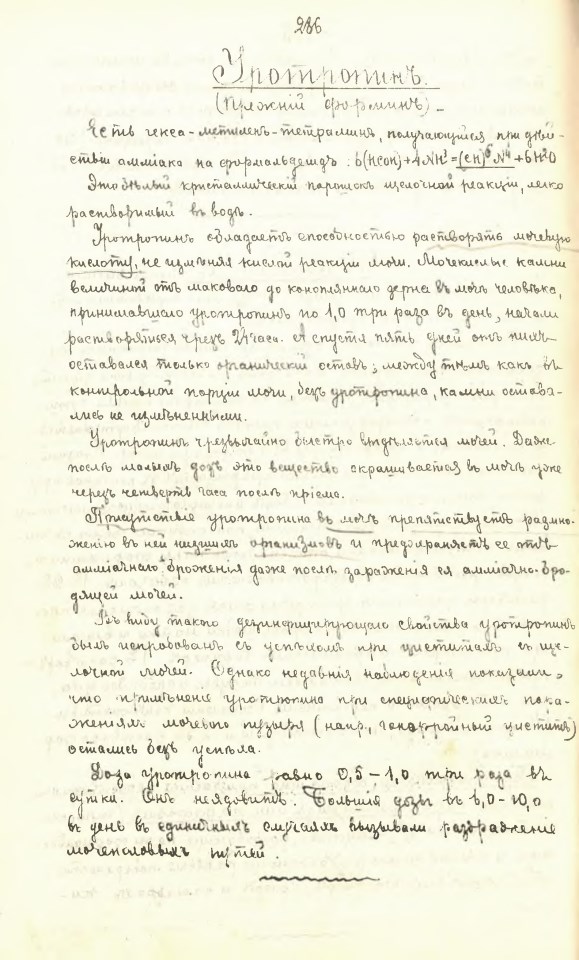 286
Уротропинъ.
(Прежній формин).
Есть гекса-метилен-тетраминъ, получающійся при дѣй-
ствіи амміака на формальдегидъ: 6(HCOH)+4NH³=(CH²)⁶N⁴+6H²O
Это бѣлый кристаллическій порошок щелочной реакціи, легко
растворимый въ водѣ.
Уротропинъ обладаетъ способностью растворять мочевую
кислоту, не измѣняя кислой реакціи мочи. Мочекислые камни
величиной отъ маковаго до конопляннаго зерна въ мочѣ человѣка,
принимавшаго уротропинъ по 1,0 три раза въ день, начали
растворяться чрезъ 24 часа. А спустя пять дней отъ нихъ
оставался только органическій оставъ; между тѣмъ какъ въ
контрольной порціи мочи, безъ уротропина, камни остава-
лись не измѣненными.
Уротропинъ чрезвычайно быстро выдѣляется мочей. Даже
послѣ малыхъ дозъ это вещество скрашивается въ мочѣ уже
черезъ четверть часа послѣ пріема.
Присутствіе уротропина въ мочѣ препятствуетъ размно-
женію въ ней низшихъ организмовъ и предохраняетъ ее отъ
амміачнаго броженія даже послѣ зараженія ея амміачно-бро-
дящей мочей.
Въ виду такого дезинфицирующаго свойства уротропинъ
былъ испробованъ съ успѣхомъ при циститахъ съ ще-
лочной мочей. Однако недавнія наблюденія показали,
что примѣненіе уротропина при специфическихъ пора-
женіяхъ мочевого пузыря (напр., гонорройный циститъ)
остались безъ успѣха.
Доза уротропина равно 0,5–1,0 три раза въ
сутки. Онъ неядовитъ. Большіе дозы въ 6,0–10,0
въ день въ единичныхъ случаяхъ вызывали раздраженіе
мочеполовыхъ путей.